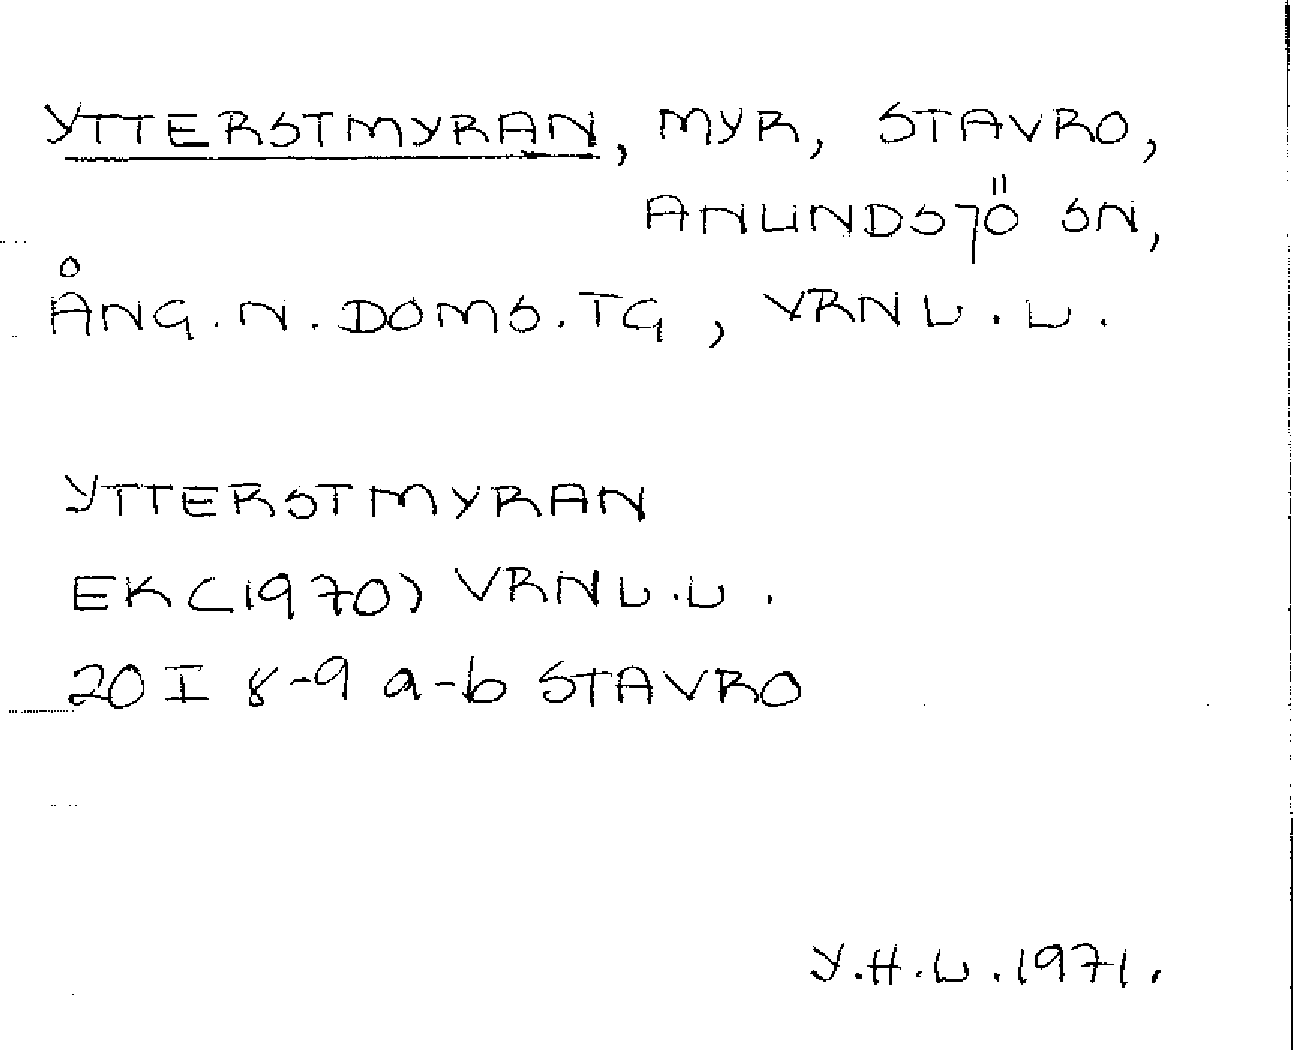 YTTERSTMYRAN, MYR, STAVRO,
ANUNDSJÖ SN,
ÅNG. N. DOMS. TG, VRNL. L.
YTTERSTMYRAN
EK (1970) VRNL. L.
20 I 8-9 a-b STAVRO
Y. H. L. 1971.